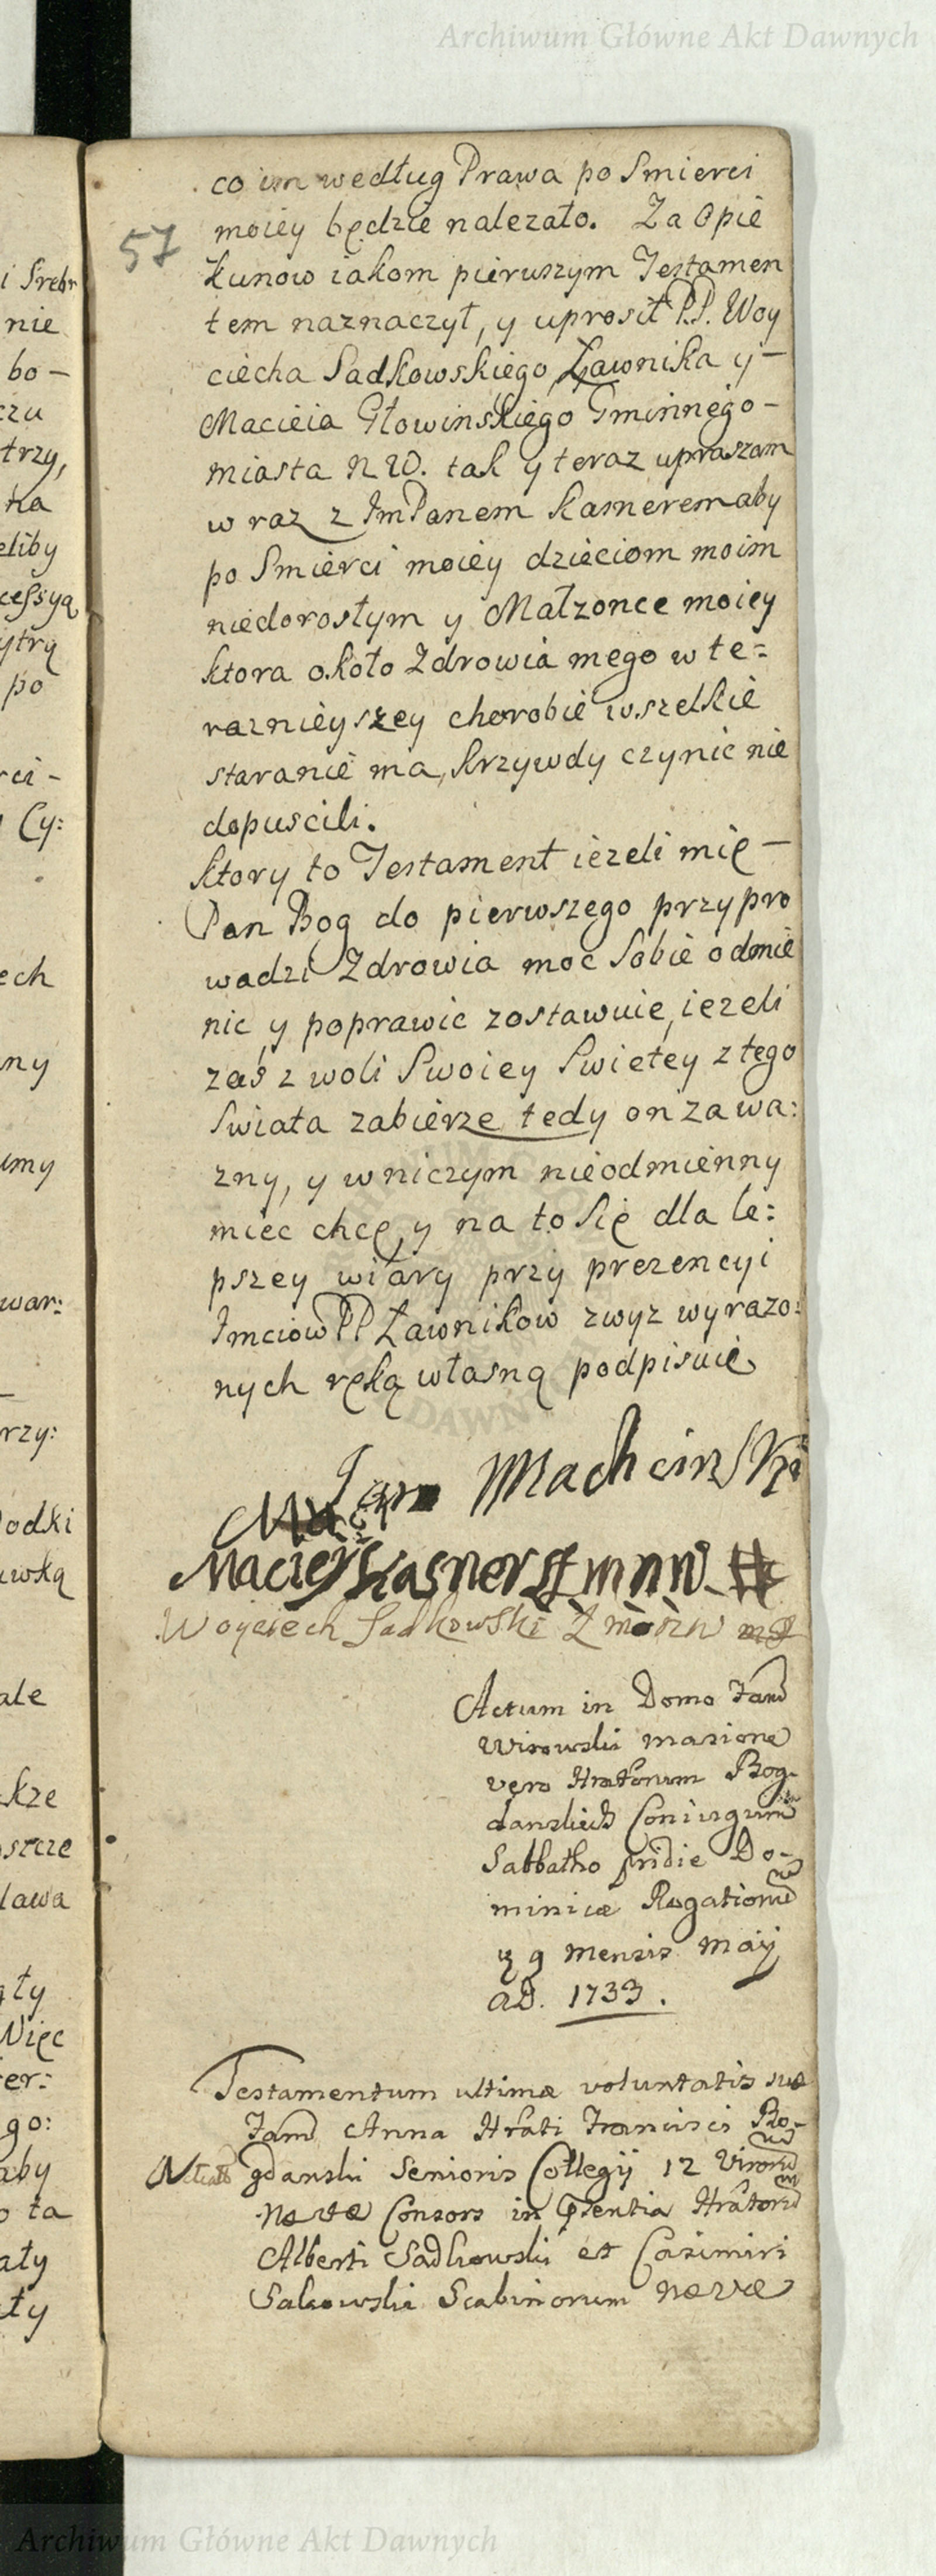 Archiwum Główne Akt Dawnych
57
co im według Prawa po Smierci
moiey będzie nalezało. Za Opie
kunow iakom pierwszym Testamen
tem naznaczył, y uprosił P.P. Woy
ciecha Sadkowskiego Ławnika y –
Macieia Głowinskiego Gminnego –
miasta N W. tak y teraz upraszam
w raz z ImPanem Kasnerem aby
po Smierci moiey dzieciom moim
niedorosłym y Małzonce moiey
ktora około Zdrowia mego w te=
raznieyszey chorobie wszelkie
staranie ma, krzywdy czynic nie
dopuscili.
ktory to Testament iezeli mię –
Pan Bog do pierwszego przypro
wadzi Zdrowia moc Sobie odmie
nic y poprawic zostawuie, iezeli
zaś z woli Swoiey Swietey z tego
Swiata zabierze tedy on za wa:
zny, y wniczym nieodmienny
miec chcę, y na to Się dla le:
pszey wiary przy prezencyi
Imciow PP Ławnikow zwyz wyrazo:
nych ręką własną podpisuie
Jan Machcinski
Maciey Kasner
Woyciech Sadkowski Ł
Actum in Domo Famd
Wisowski mansione
vero Hratorum Bog-
danskich Coniugum
Sabbatho pridie Do-
minicæ Rogationum
9 Mensis Maij
AD. 1733.
Testamentum ultimæ voluntatis suæ
Famd Anna Hrati Francisci Bo-
gdanski Senioris Collegij 12 Virorum
Næ Væ Consors in Pntia Hratorum
Alberti Sadkowski et Casimiri
Sakowski Scabinorum Næ Væ
Archiwum Główne Akt Dawnych